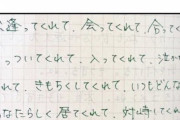 逢ってくれて、会ってくれて、合ってく
っついてくれて、入ってくれて、泣か
れて、きもちくしてくれて、いつもどんな
なたらしく居てくれて、対峙してくれ